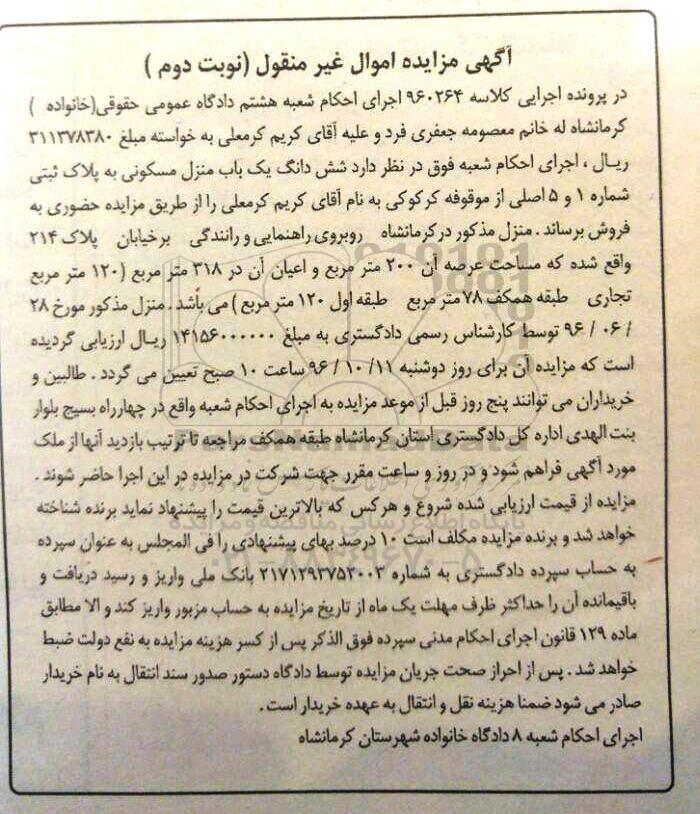 آگهی مزایده اموال غیر منقول (نوبت دوم )
در پرونده اجرایی کلاسه ۹۶۰۲۶۴ اجرای احکام شعبه هشتم دادگاه عمومی حقوقی(خانواده )
کرمانشاه له خانم معصومه جعفری فرد و علیه آقای کریم کرمعلی به خواسته مبلغ ۳۱۱۳۷۸۳۸۰
ریـال ، اجرای احکام شعبه فوق در نظر دارد شش دانگ یک باب منزل مسکونی به پلاک ثبتی
شماره ۱ و ۵ اصلی از موقوفه کرکوکی به نام آقای کریم کرمعلی را از طریق مزایده حضوری به
فروش برساند . منزل مذکور در کرمانشاه روبروی راهنمایی و رانندگی برخیابان پلاک ۲۱۴
واقع شده که مساحت عرصه آن ۲۰۰ متر مربع و اعیان آن در ۳۱۸ متر مربع (۱۲۰ متر مربع
تجاری طبقه همکف ۷۸ متر مربع طبقه اول ۱۲۰ متر مربع ) می باشد . منزل مذکور مورخ ۲۸
/ ۰۶ / ۹۶ توسط کارشناس رسمی دادگستری به مبلغ ۱۴۱۵۶۰۰۰۰۰۰ ریـال ارزیابی گردیده
است که مزایده آن برای روز دوشنبه ۱۱/ ۱۰ / ۹۶ ساعت ۱۰ صبح تعیین می گردد . طالبین و
خریداران می توانند پنج روز قبل از موعد مزایده به اجرای احکام شعبه واقع در چهارراه بسیج بلوار
بنت الهدی اداره کل دادگستری استان کرمانشاه طبقه همکف مراجعه تا ترتیب بازدید آنها از ملک
مورد آگهی فراهم شود و در روز و ساعت مقرر جهت شرکت در مزایده در این اجرا حاضر شوند .
مزایده از قیمت ارزیابی شده شروع و هرکس که بالاترین قیمت را پیشنهاد نماید برنده شناخته
خواهد شد و برنده مزایده مکلف است ۱۰ درصد بهای پیشنهادی را فی المجلس به عنوان سپرده
به حساب سپرده دادگستری به شماره ۲۱۷۱۲۹۳۷۵۲۰۰۳ بانک ملی واریز و رسید دریافت و
باقیمانده آن را حداکثر ظرف مهلت یک ماه از تاریخ مزایده به حساب مزبور واریز کند و الا مطابق
ماده ۱۲۹ قانون اجرای احکام مدنی سپرده فوق الذکر پس از کسر هزینه مزایده به نفع دولت ضبط
خواهد شد . پس از احراز صحت جریان مزایده توسط دادگاه دستور صدور سند انتقال به نام خریدار
صادر می شود ضمنا هزینه نقل و انتقال به عهده خریدار است .
اجرای احکام شعبه ۸ دادگاه خانواده شهرستان کرمانشاه